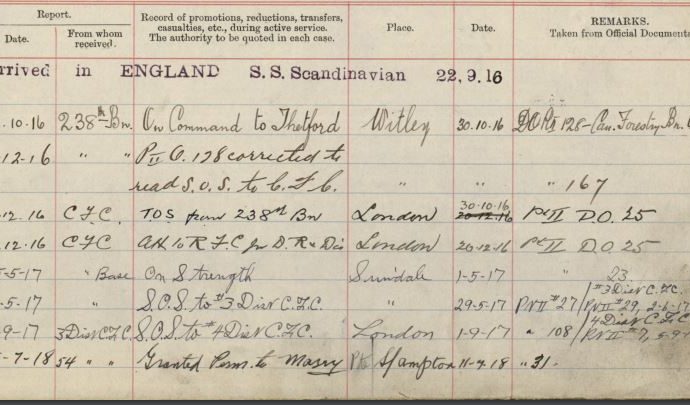 Report.
Date. From whom received.
Record of promotions, reductions, transfers, casualties, etc., during active service. The authority to be quoted in each case.
Place. Date.
REMARKS.
Taken from Official Documents
rrived in ENGLAND S.S. Scandinavian 22.9.16
.10.16 238th Bn. On Command to Thetford Witley 30.10.16 128-Can. Forestry Bn.
12-16 " " Pt II O. 128 corrected to
read S.O.S. to C.F.C. " " " 167
.12.16 CFC. TOS from 238th Bn London 30-10-16 20-12-16 Pt II D.O. 25
.12.16 CFC London 20-12-16 Pt II D.O. 25
-5-17 " Base On Strength Sunndale 1-5-17 " 23
-5-17 " S.O.S. to #3 Dist C.F.C. " 29-5-17 Pt II #27 / #3 Dist C.F.C. Pt II #29, 2-6-17
9-17 3 Dist C.F.C. S.O.S to #4 Dist C.F.C. London 1-9-17 " 108 / 4 Dist C.F.C.
-7-18 54 " " Granted Perm. to Marry S'hampton 11-7-18 " 31.